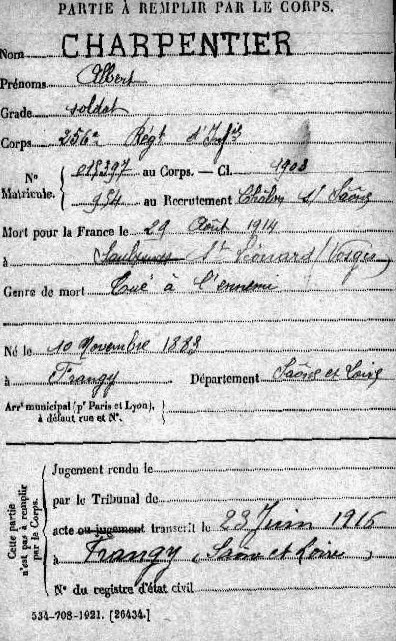 PARTIE À REMPLIR PAR LE CORPS.
Nom CHARPENTIER
Prénoms Albert
Grade soldat
Corps 256e Régt d'Infie
N° Matricule. 018397 au Corps. — Cl. 1903
954 au Recrutement Châlon s/ Saône
Mort pour la France le 29 Août 1914
à St Léonard (Vosges)
Genre de mort Tué à l'ennemi
Né le 10 Novembre 1883
à Frangy Département Saône et Loire
Arrt municipal (pr Paris et Lyon),
à défaut rue et N°.
Cette partie n'est pas à remplir par le Corps.
Jugement rendu le
par le Tribunal de
acte ou jugement transcrit le 23 Juin 1916
à Frangy (Saône et Loire)
N° du registre d'état civil
534-708-1921. [26434.]